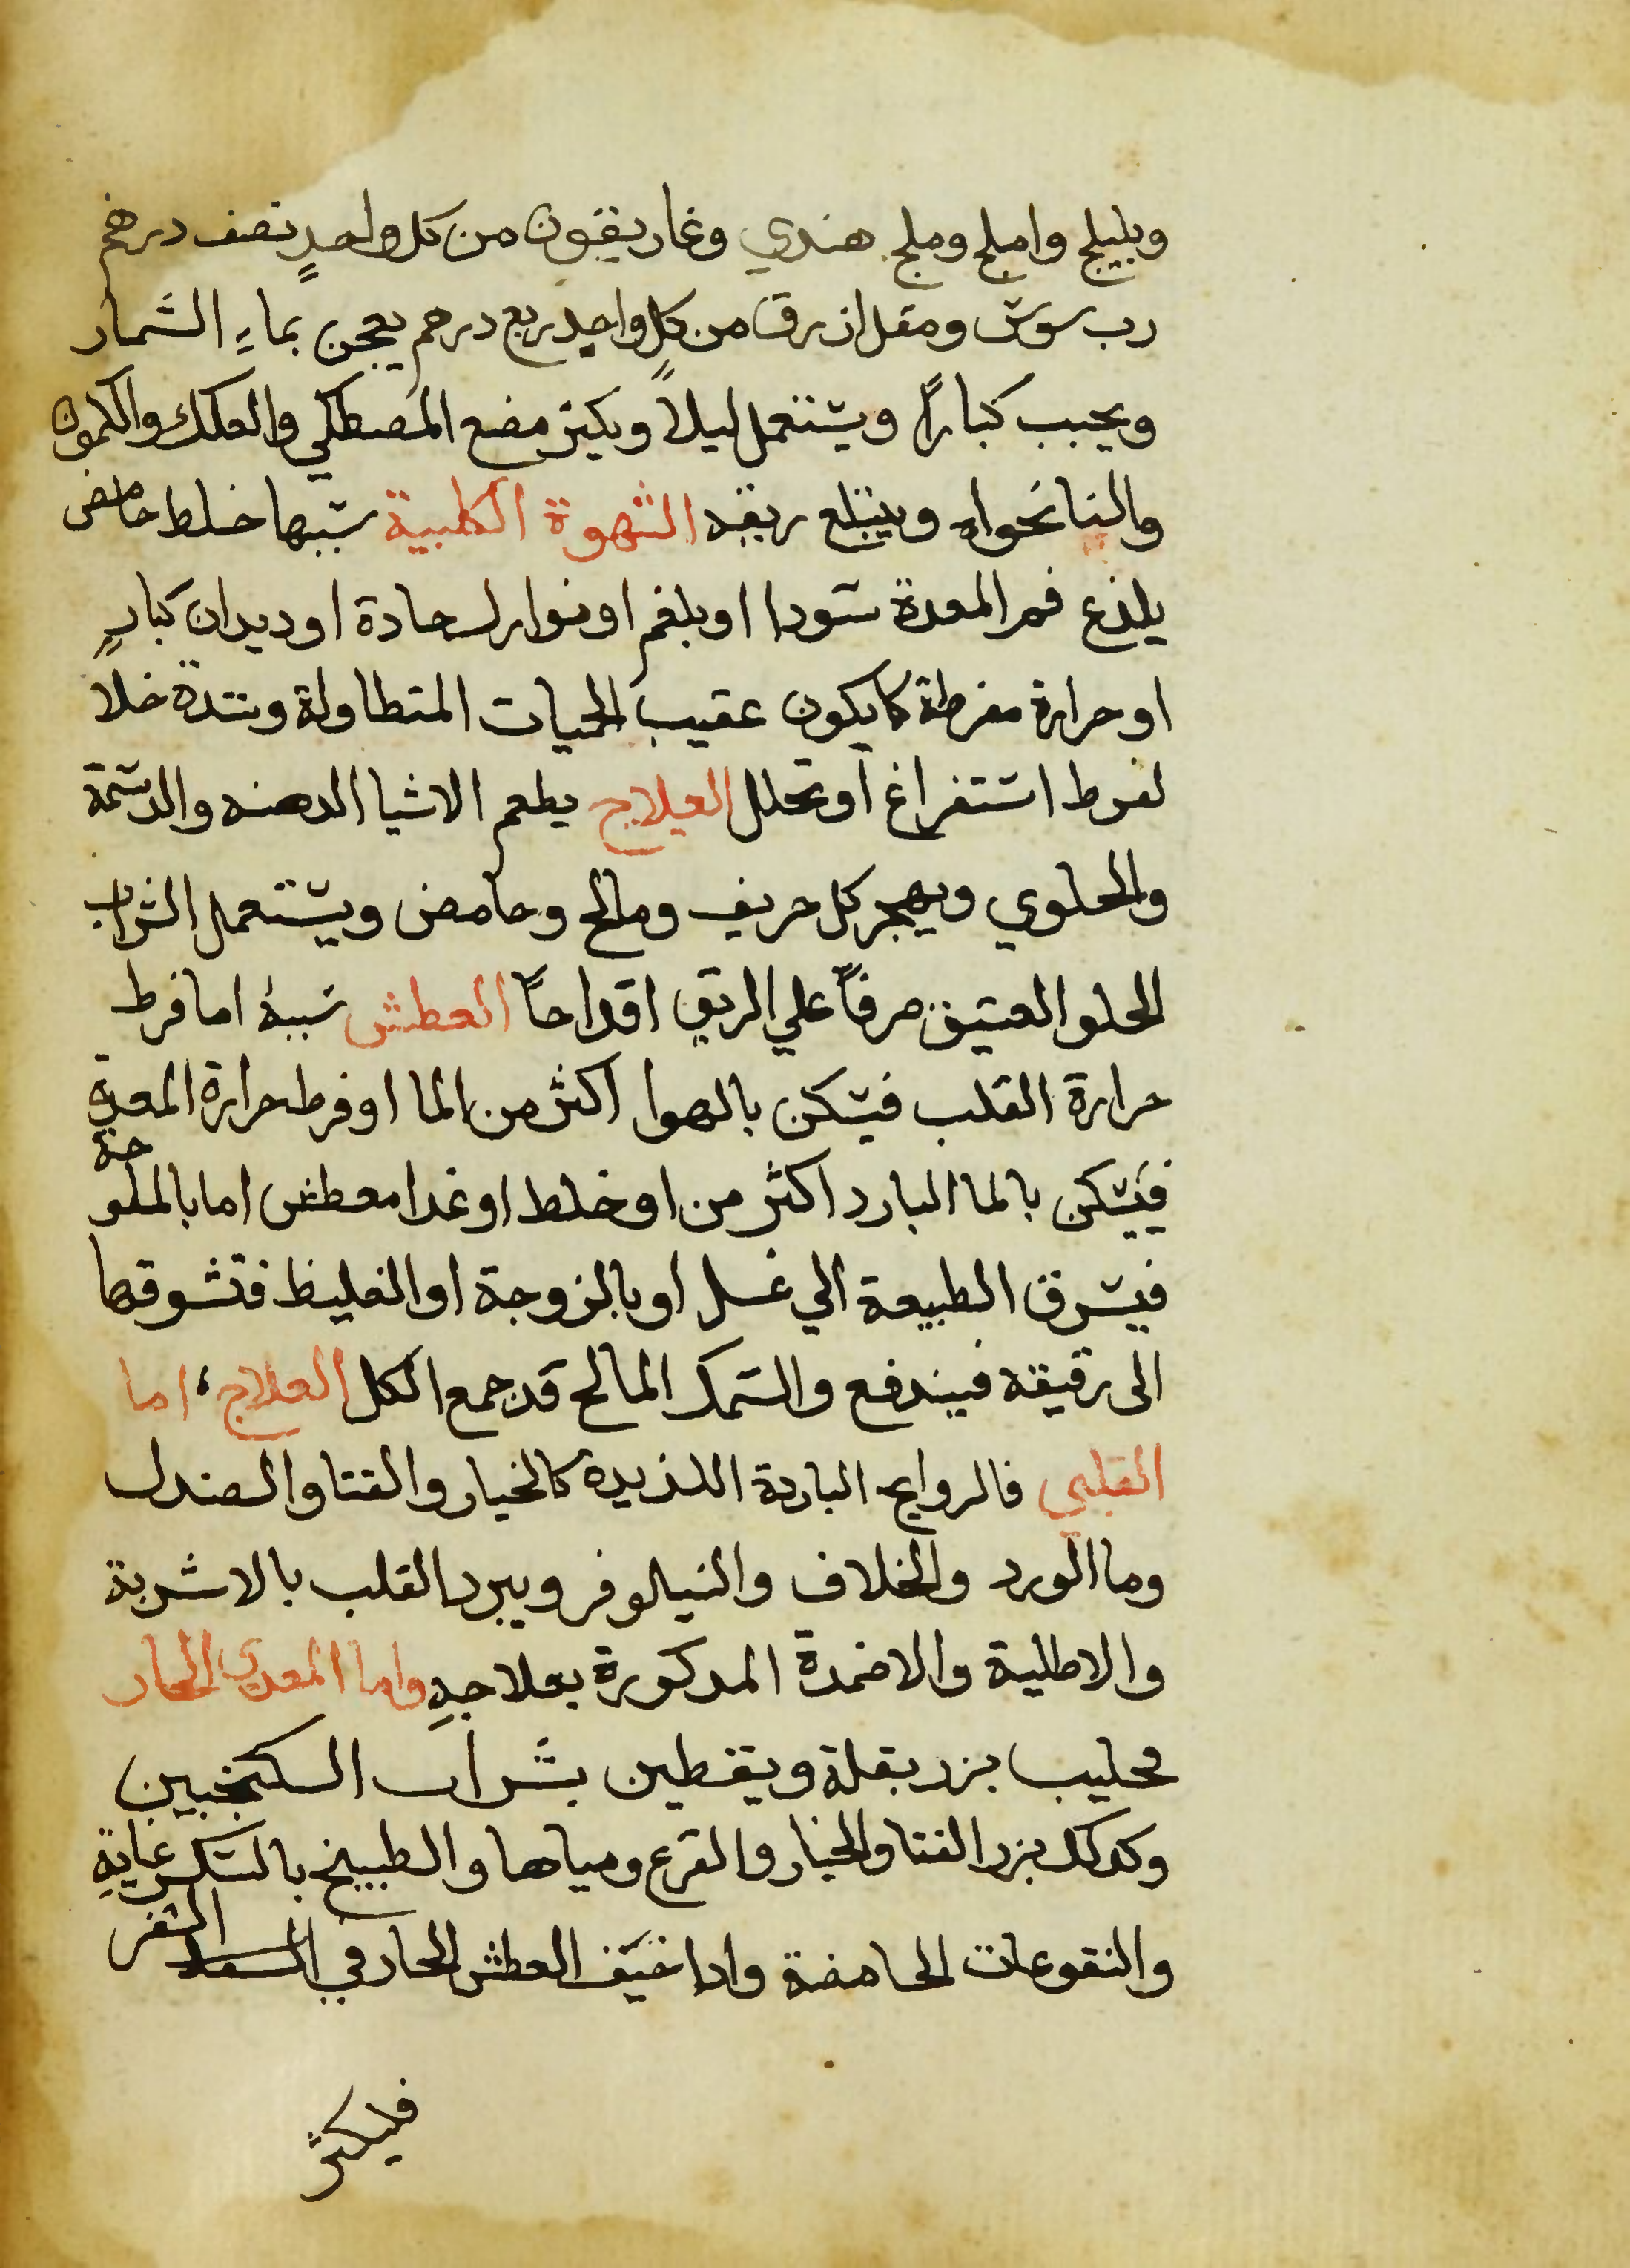 وبليلج واملج وملح هندي وغاريقون من كل واحدٍ نصف درهم
رب سوس ومقل ازرق من كلٍ واحدٍ ربع درهم يعجن بماءِ الشمار
ويحبب كباراً ويستعمل ليلاً ويكثر مضع المصطكي والعلك والكمون
والنانخواه ويبتلع ريقه الشهوة الكلبية سببها خلط حامض
يلذع فم المعدة سودا او بلغم او نوازل حادة او ديدان كبارٍ
او حرارة مفرطة كما يكون عقيب الحميات المتطاولة وشدة خلاً
لفرط استفراغ او تحلل العلاج يطعم الاشيا الدهنه والدسمة
والحلوي ويهجر كل حريف ومالح وحامض ويستعمل الشراب
الحلو العتيق صرفاً علي الريق اقداحاً العطش سببهُ اما فرط
حرارة القلب فيسكن بالهوا اكثر من الما او فرط حرارة المعدةِ
فيسكن بالما البارد اكثر من او خلط او غدا معطش اما بالملوحة
فيسرق الطبيعة الي غسل او بالزوجة او الغليظ فتشوقها
الى ترقيقه فيندفع والسمك المالح قد جمع الكل العلاج، اما
القلبي فالروايح الباردة اللذيدة كالخيار والقتا والصندل
وما الورد والخلاف والنيلوفر ويبرد القلب بالاشربة
والاطلية والاضمدة المدكورة بعلاجهِ واما المعدي الحار
محليب بزر بقلة ويقطين بشراب السكنجبين
وكدلك بزر القتا والخيار والقرع ومياهها والطبيخ بالسكر غايةٍ
والنقوعات الحامضة وادا خيف العطش الحار في السفر
فليكثر